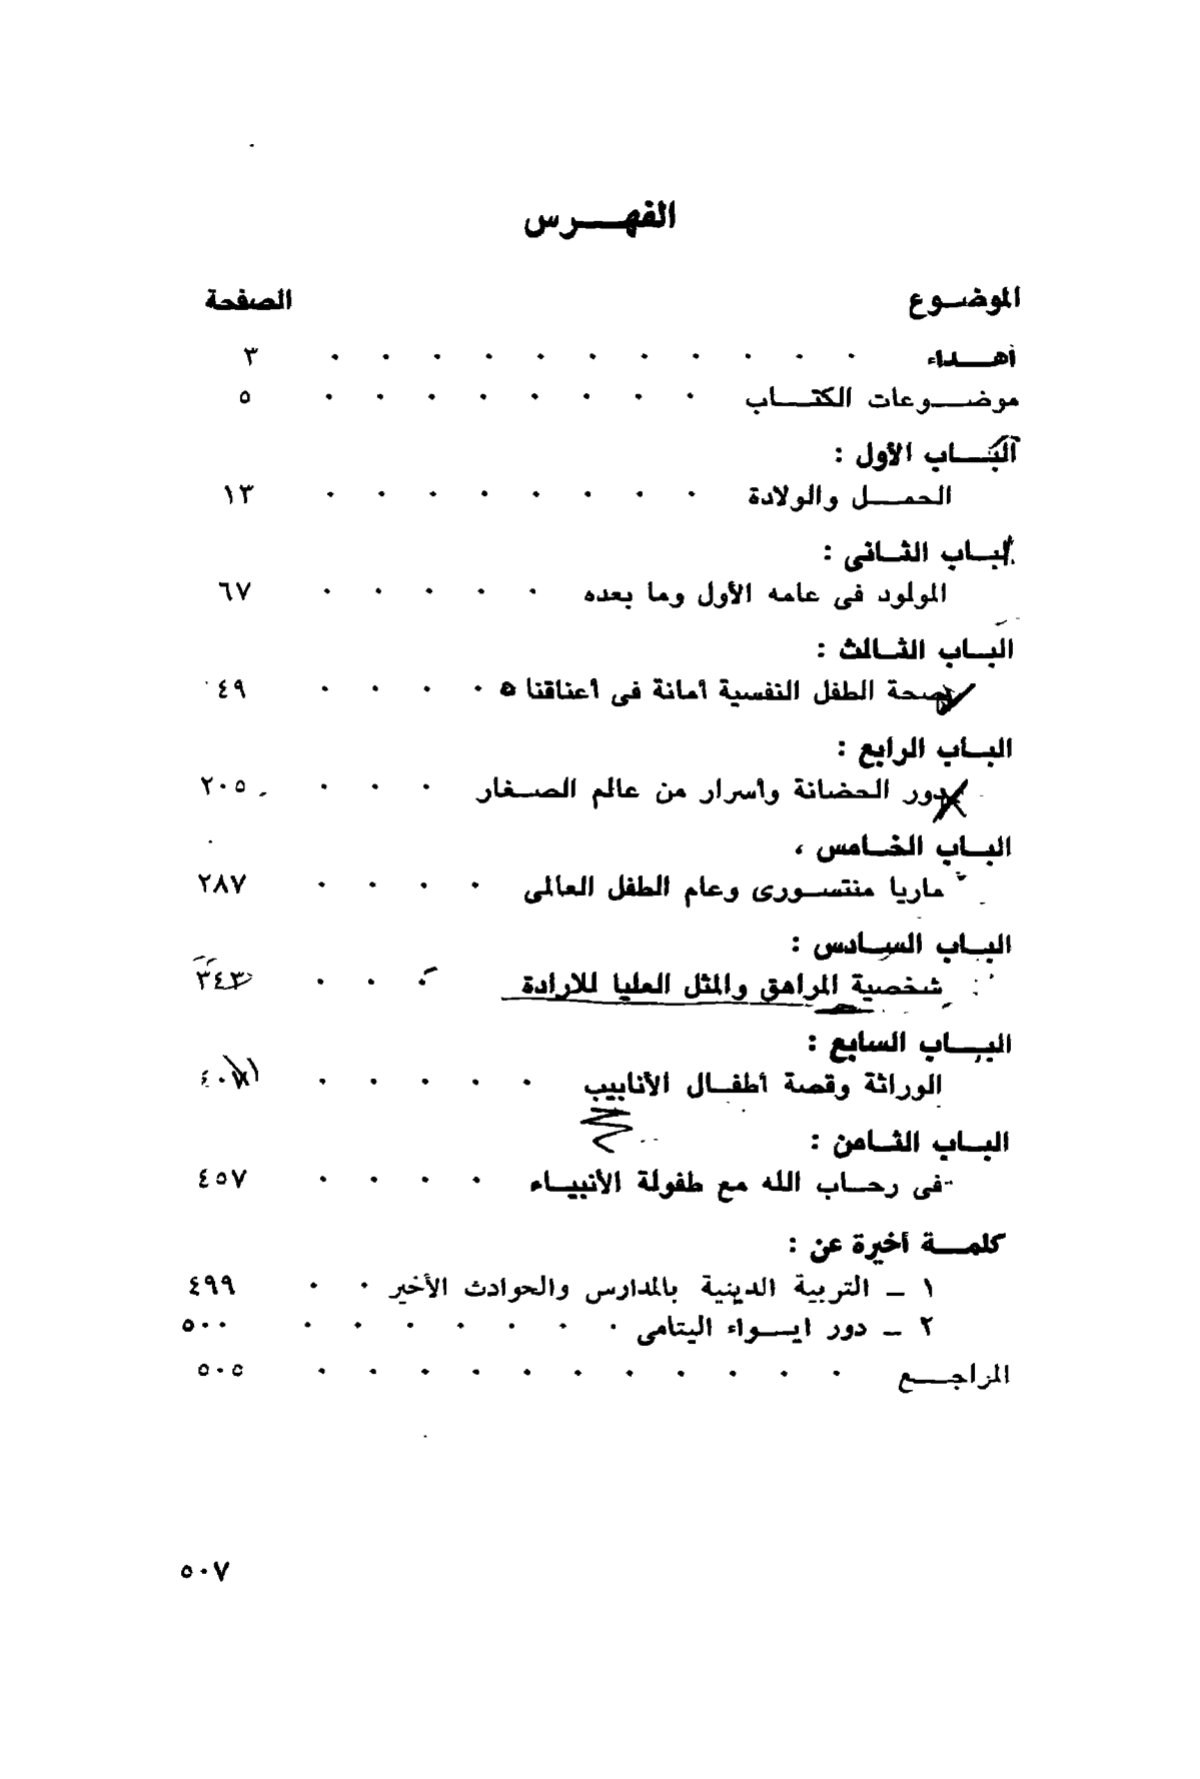 الفهـــرس
الموضــوع الصفحة
أهـــداء . . . . . . . . . . . ٣
موضـــوعات الكتـــاب . . . . . . . . ٥
البـــاب الأول :
الحمـــل والولادة . . . . . . . . ١٣
البــاب الثــانى :
المولود فى عامه الأول وما بعده . . . . . ٦٧
البــاب الثــالث :
صحة الطفل النفسية أمانة فى أعناقنا . . . . ٤٩
البــاب الرابع :
دور الحضانة وأسرار من عالم الصــغار . . . ٢٠٥
البــاب الخــامس ،
ماريا منتســورى وعام الطفل العالمى . . . . ٢٨٧
البــاب الســادس :
شخصية المراهق والمثل العليا للارادة . . . ٣٤٣
البـــاب السابع :
الوراثة وقصة أطفــال الأنابيب . . . . .
البــاب الثــامن :
فى رحــاب الله مع طفولة الأنبيــاء . . . . ٤٥٧
كلمـــة أخيرة عن :
١ ــ التربية الدينية بالمدارس والحوادث الأخير . . ٤٩٩
٢ ــ دور ايـــواء اليتامى . . . . . . . ٥٠٠
المراجـــع . . . . . . . . . . . ٥٠٥
٥٠٧